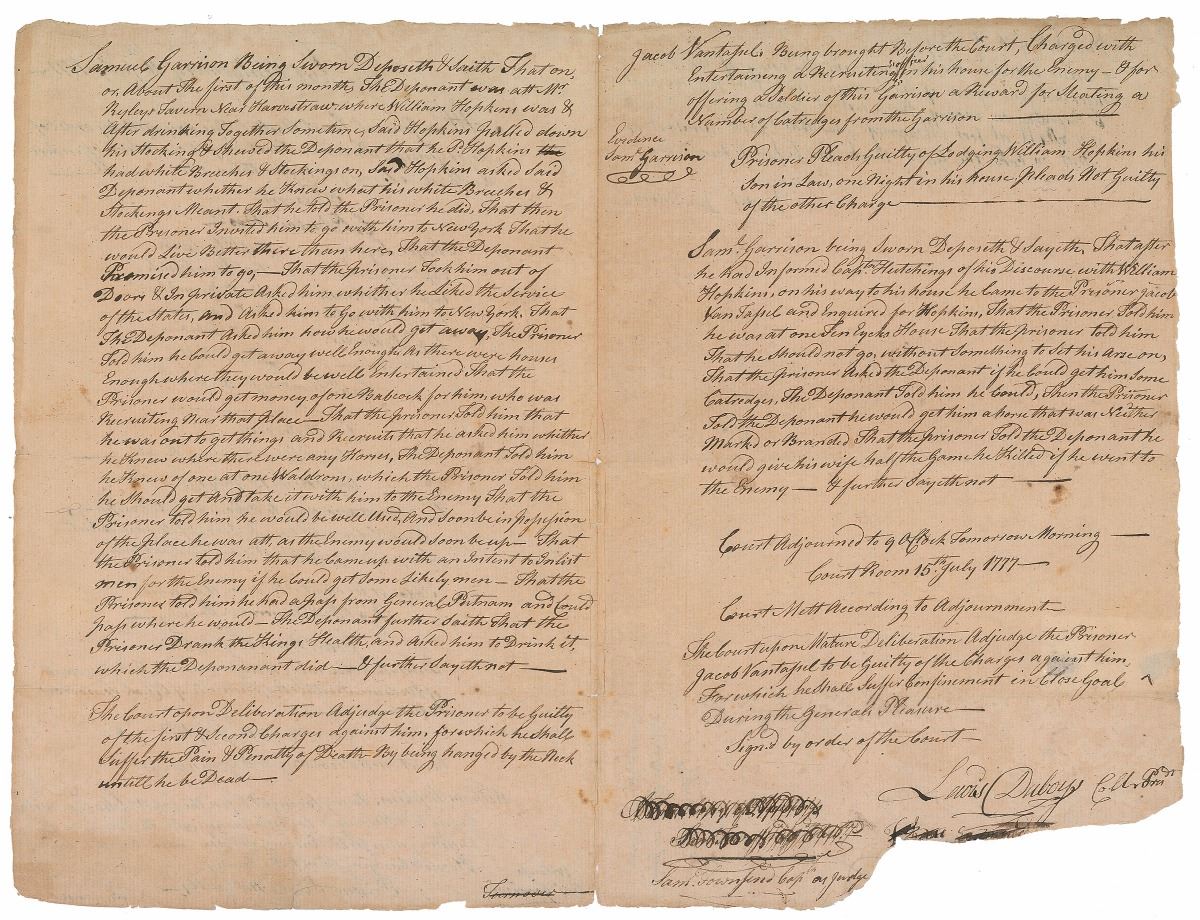 Samuel Garrison Being Sworn Deposeth & Saith That on,
or, About The first of this month, The Deponant was att Mr
Keyleys Tavern Near Harvestraw, where William Hopkins was &
After drinking Together Sometime, Said Hopkins pulled down
his Stocking & shewed the Deponant that he Sd. Hopkins
had white Breeches & Stockings on, Said Hopkins asked Said
Deponant whether he Knew what his white Breeches &
Stockings Meant, That he told the Prisoner he did, That then
the Prisoner Invited him to go with him to New York That he
would Live Better there than here, That the Deponant
Promised him to go,— That the prisoner Took him out of
Doors & In private Asked him, whether he Liked the Service
of the States, and Asked him to Go with him to New York. That
The Deponant Asked him how he would get away, The Prisoner
Told him he Could get away well Enough, As there were houses
Enough where they would be well Entertained That the
Prisoner would get money of one Babcock for him, who was
Recruiting Near that place— That the prisoner Told him that
he was out to get things and Recruits that he asked him whither
he Knew where there were any Horses, The Deponant Told him
he Knew of one at one Waldrons, which the Prisoner Told him
he Should get And take it with him to the Enemy That the
Prisoner told him he would be well Used, And soon be in possession
of the place he was att, as the Enemy would soon be up — That
the Prisoner told him that he Came up with an Intent to Inlist
men for the Enemy if he Could get Some Likely men — That the
Prisoner told him he had a pass from General Putnam and Could
pass where he would — The Deponant further Saith That the
Prisoner Drank the Kings Health, and Asked him to Drink it,
which the Deponanant did — & further Sayeth not —
The Court upon Deliberation Adjudge the Prisoner to be Guilty
of the first & Second Charges against him, for which he Shall
Suffer the Pain & Penalty of Death By being hanged by the Neck
untill he be Dead —
Turnover
Jacob Vantassel. Being brought Before the Court, Charged with
Entertaining a Recruiting officer in his house for the Enemy — & for
offering a Soldier of this Garrison a Reward for Steating a
Number of Catredges from the Garrison
Evidence
Saml. Garrison
Prisoner Pleads Guilty of Lodging William Hopkins his
Son in Law, one Night in his house, pleads Not Guilty
of the other Charge
Saml. Garrison being Sworn Deposeth & Sayeth, That after
he had Informed Captn. Hutchings of his Discourse with William
Hopkins, on his way to his house he Came to the Prisoner Jacob
Van Tassel and Enquired for Hopkins, That the Prisoner Told him
he was at one Ten Eycks House That the prisoner told him
That he Should not go, without Something to Set his Arse on,
That the prisoner Asked the Deponant if he Could get him Some
Catredges, The Deponant Told him he Could, Then the Prisoner
Told the Deponant he would get him a horse that was Neither
Markd or Branded That the prisoner Told The Deponant he
would give his wife half the Game he Killed if he went to
the Enemy — & further Sayeth not —
Court Adjourned to 9 oClock Tomorrow Morning —
Court Room 15th. July 1777 —
Court Mett According to Adjournment —
The Court upon Mature Deliberation Adjudge the Prisoner
Jacob Vantassel to be Guilty of the Charges against him,
For which he Shall Suffer Confinement in Close Goal
During the Generals Pleasure —
Signd by order of the Court
Lewis Duboys Coll &
Saml. Townsend Captn. as Judge